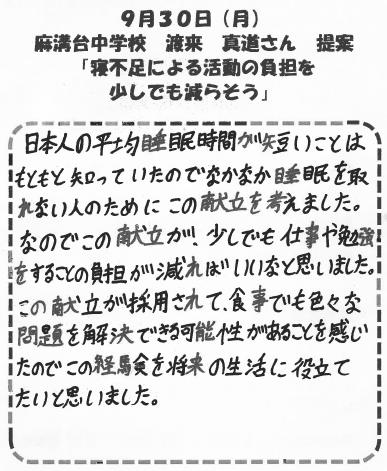 ９月３０日（月）
麻溝台中学校　渡来　真道さん　提案
「寝不足による活動の負担を
少しでも減らそう」
日本人の平均睡眠時間が短いことは
もともと知っていたのでなかなか睡眠を取
れない人のために この献立を考えました。
なのでこの献立が、少しでも仕事や勉強
をすることの負担が減ればいいなと思いました。
この献立が採用されて、食事でも色々な
問題を解決できる可能性があることを感じ
たのでこの経験を将来の生活に役立て
たいと思いました。